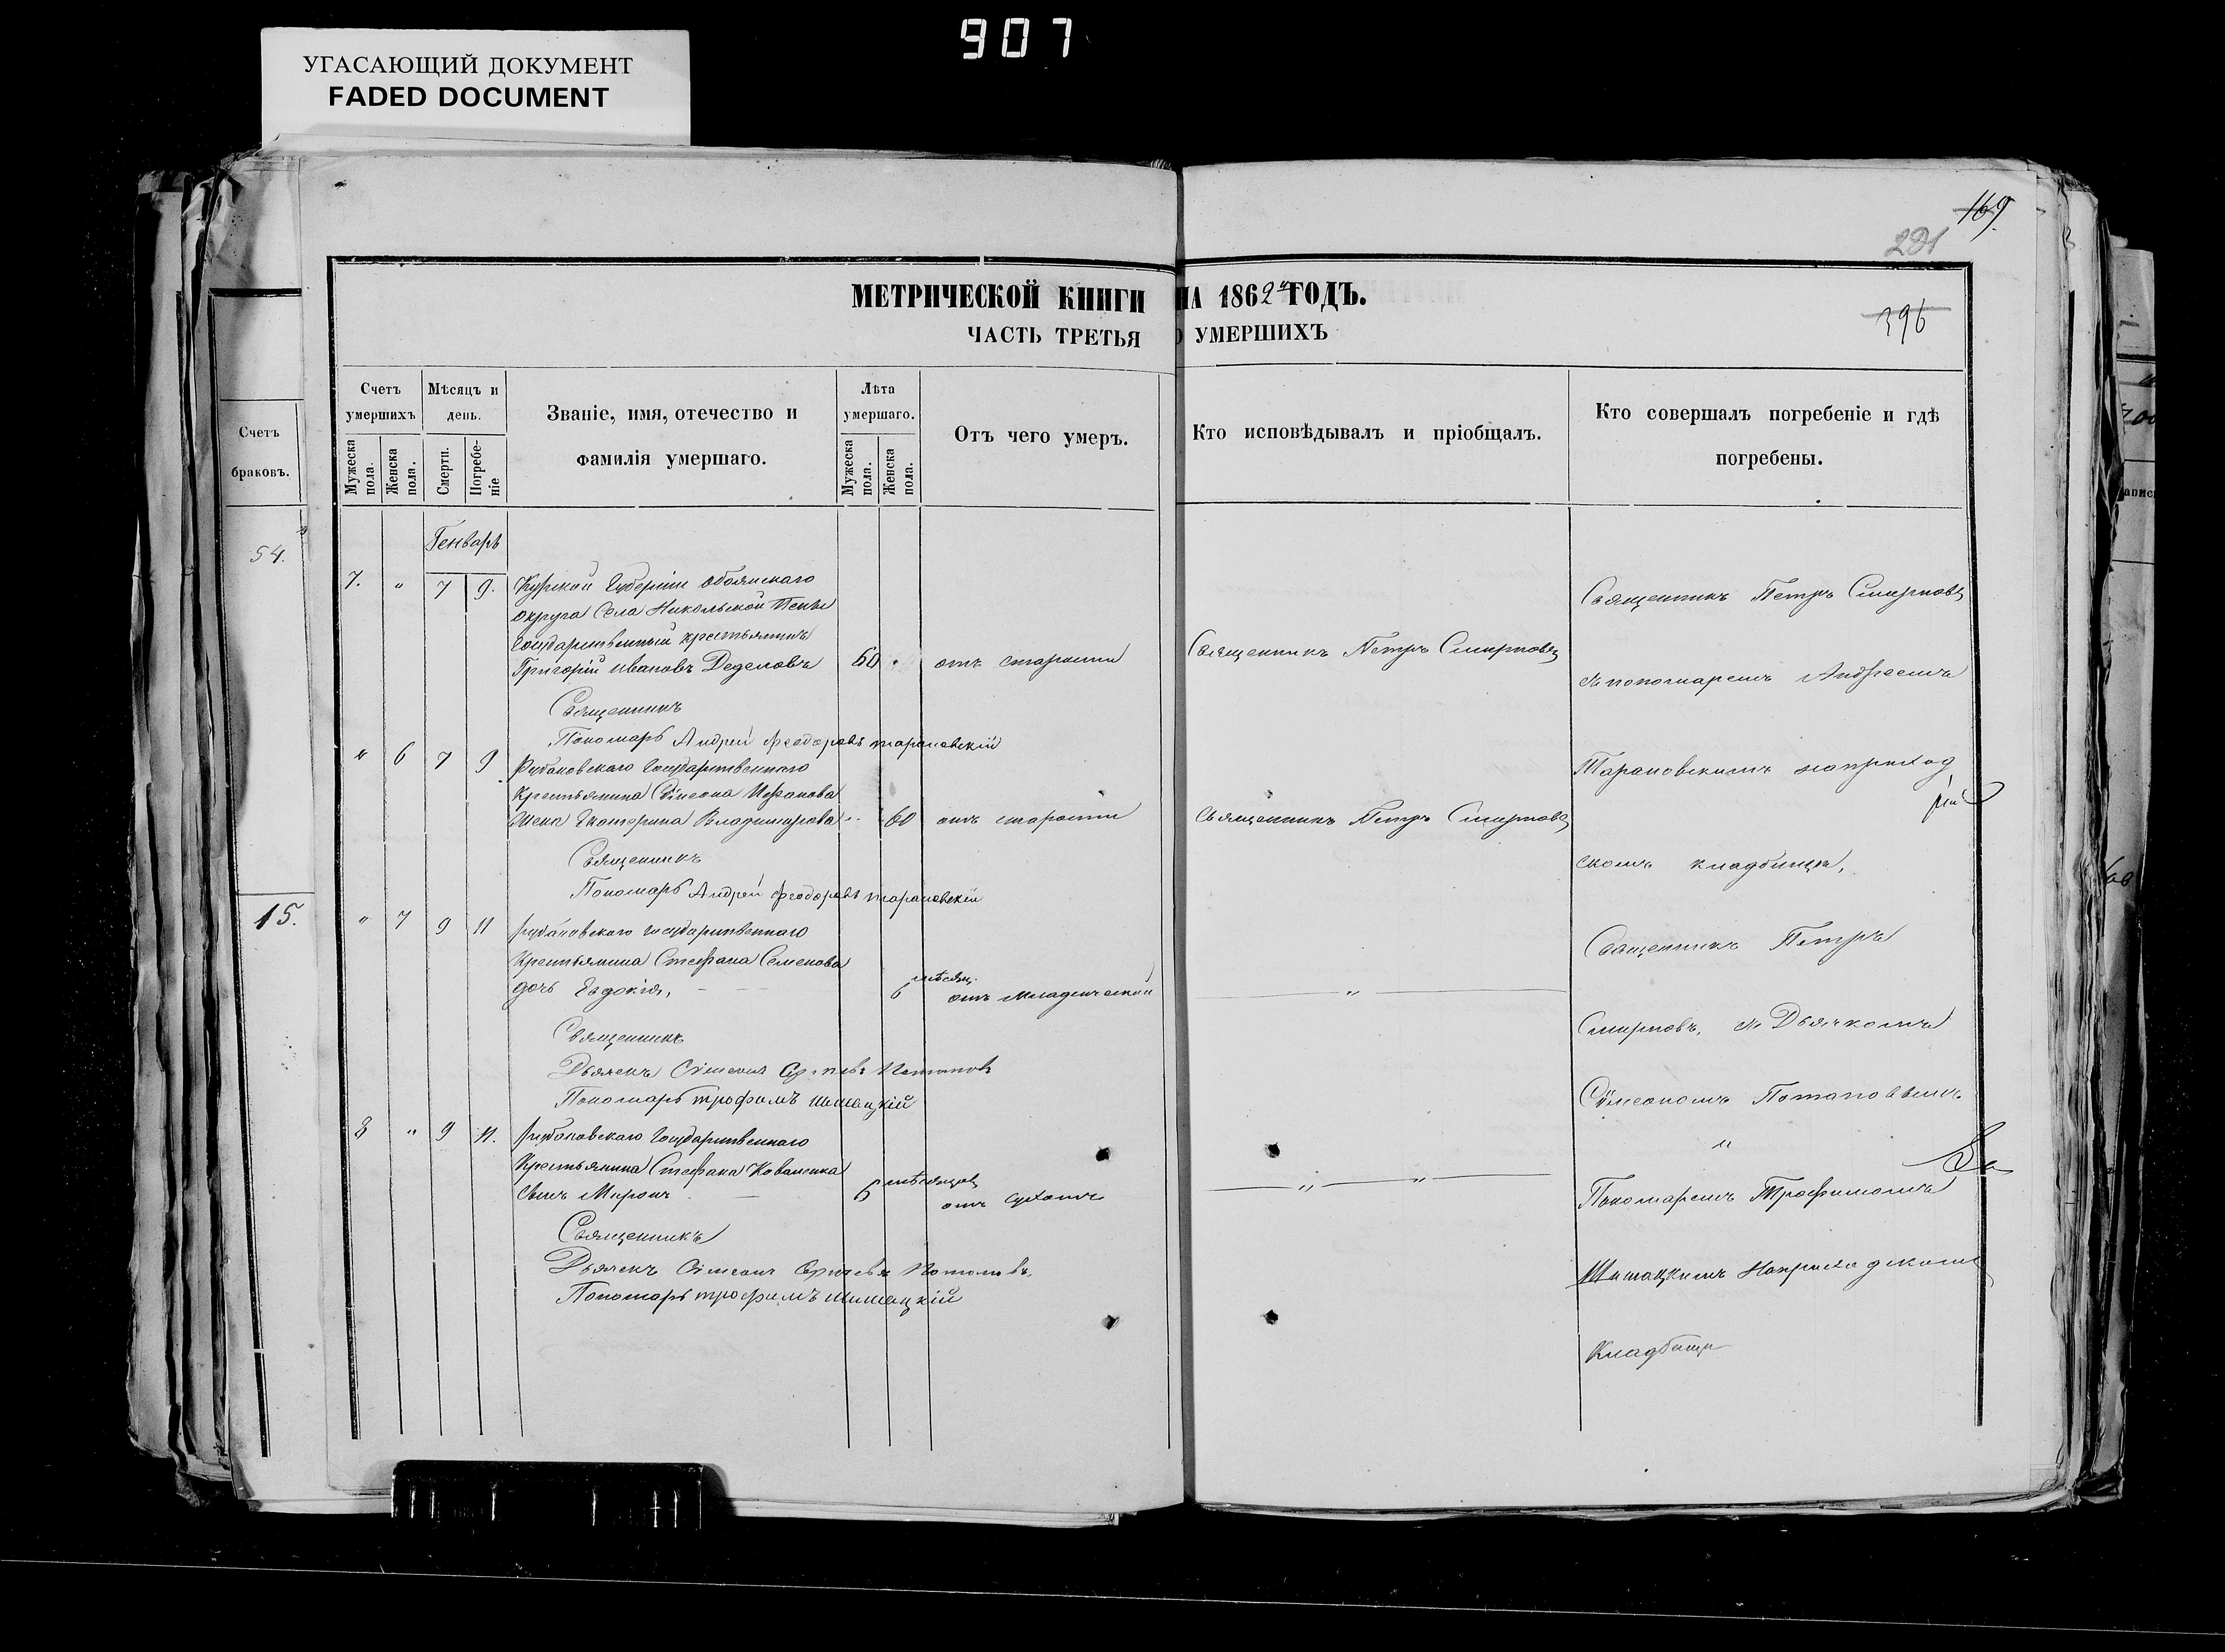 907
УГАСАЮЩИЙ ДОКУМЕНТ
FADED DOCUMENT
169.
291
396
МЕТРИЧЕСКОЙ КНИГИ НА 1862й ГОДЪ.
ЧАСТЬ ТРЕТЬЯ О УМЕРШИХЪ
Счетъ
браковъ.
54.
15.
Счетъ умершихъ
Мужеска пола.
Женска пола.
Мѣсяцъ и день.
Смерти.
Погребе-
ніе
Званіе, имя, отечество и
фамилія умершаго.
Лѣта умершаго.
Мужеска пола.
Женска пола.
Отъ чего умеръ.
Кто исповѣдывалъ и пріобщалъ.
Кто совершалъ погребеніе и гдѣ
погребены.
Генварь
7. " 7 9. Курской Губерніи Обоянскаго
округа Села Никольской Пены
Государственный крестьянинъ
Григорій Ивановъ Деделовъ 60 " отъ старости
Священникъ Петръ Смирновъ
Священникъ
Пономарь Андрей Феодоровъ Тарановскій
" 6 7 9 Рубановскаго Государственнаго
Крестьянина Сѵмеона
Жена Екатерина Владимирова " 60 отъ старости
Священникъ Петръ Смирновъ
Священникъ
Пономарь Андрей Феодоровъ Тарановскій
" 7 9 11 Рубановскаго Государственнаго
Крестьянина Стефана Семенова
дочь Евдокія, 6 мѣсяц. отъ младенческой
"
Священникъ
Дьячекъ Сѵмеонъ Потаповъ
Пономарь Трофимъ Шишацкій
8 " 9 11. Рубановскаго Государственнаго
Крестьянина Стефана Коваленка
сынъ Миронъ 6 мѣсяцовъ отъ сухотъ
" "
Священникъ
Дьячекъ Сѵмеонъ Потаповъ
Пономарь Трофимъ Шишацкій
Священникъ Петръ Смирновъ
съ пономаремъ Андреемъ
Тарановскимъ на приход
скомъ кладбищѣ,
Священникъ Петръ
Смирновъ, съ Дьячкомъ
Сѵмеономъ Потаповымъ
и
Пономаремъ Трофимомъ
Шишацкимъ на приходскомъ
Кладбищѣ